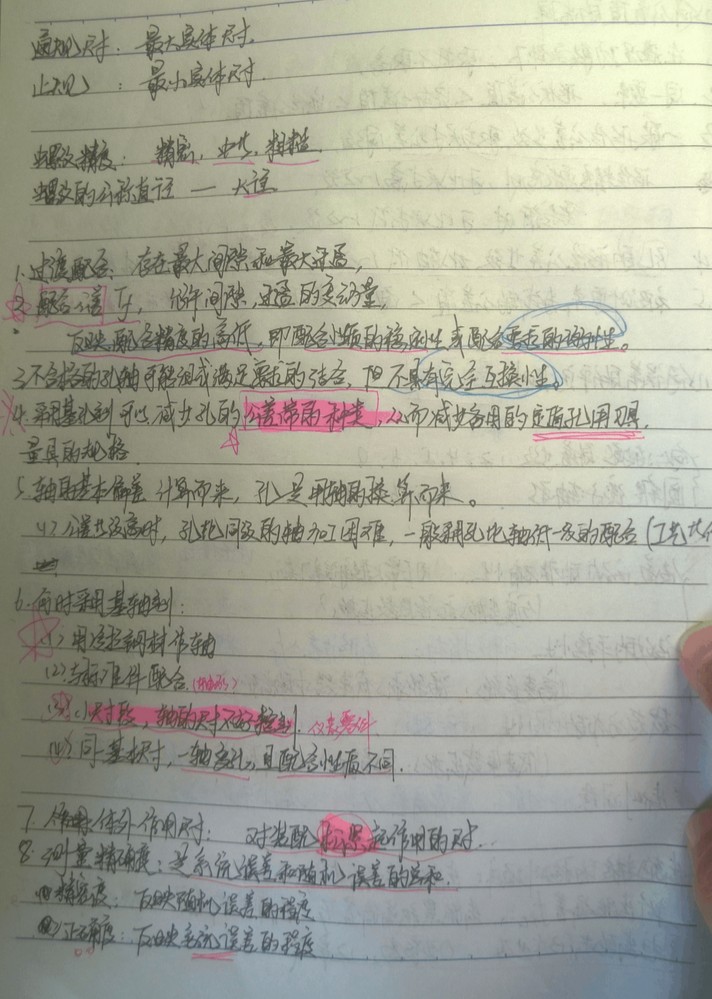 通规尺寸：最大实体尺寸.
止规〃：最小实体尺寸.
螺纹精度：精密，中等，粗糙
螺纹的公称直径 — 大径
1.过渡配合：存在最大间隙和最大过盈，
2.配合公差Tf，允许间隙，过盈的变动量，
反映配合精度的高低，即配合性质的稳定性或配合要求的
3.不合格的孔轴可能组成满足要求的结合，但不具有完全互换性。
4.采用基孔制可以减少孔的公差带的种类，从而减少备用的定值孔用刀具.
量具的规格.
5.轴用基本偏差 计算而来，孔是用轴的换算而来。
(1)公差等级高时，孔比同级的轴加工困难，一般采用孔比轴低一级的配合(工艺
6.何时采用基轴制：
(1)用冷拉钢材作轴
(2)与标准件配合
(3)小尺寸段，轴的尺寸不好控制.仪表零件
(4)同一基本尺寸，一轴多孔，且配合性质不同.
7.作用体外作用尺寸：对装配 起作用的尺寸.
8.测量精确度：是系统误差和随机误差的总和.
(1)精密度：反映随机误差的程度
(2)正确度：反映系统误差的程度